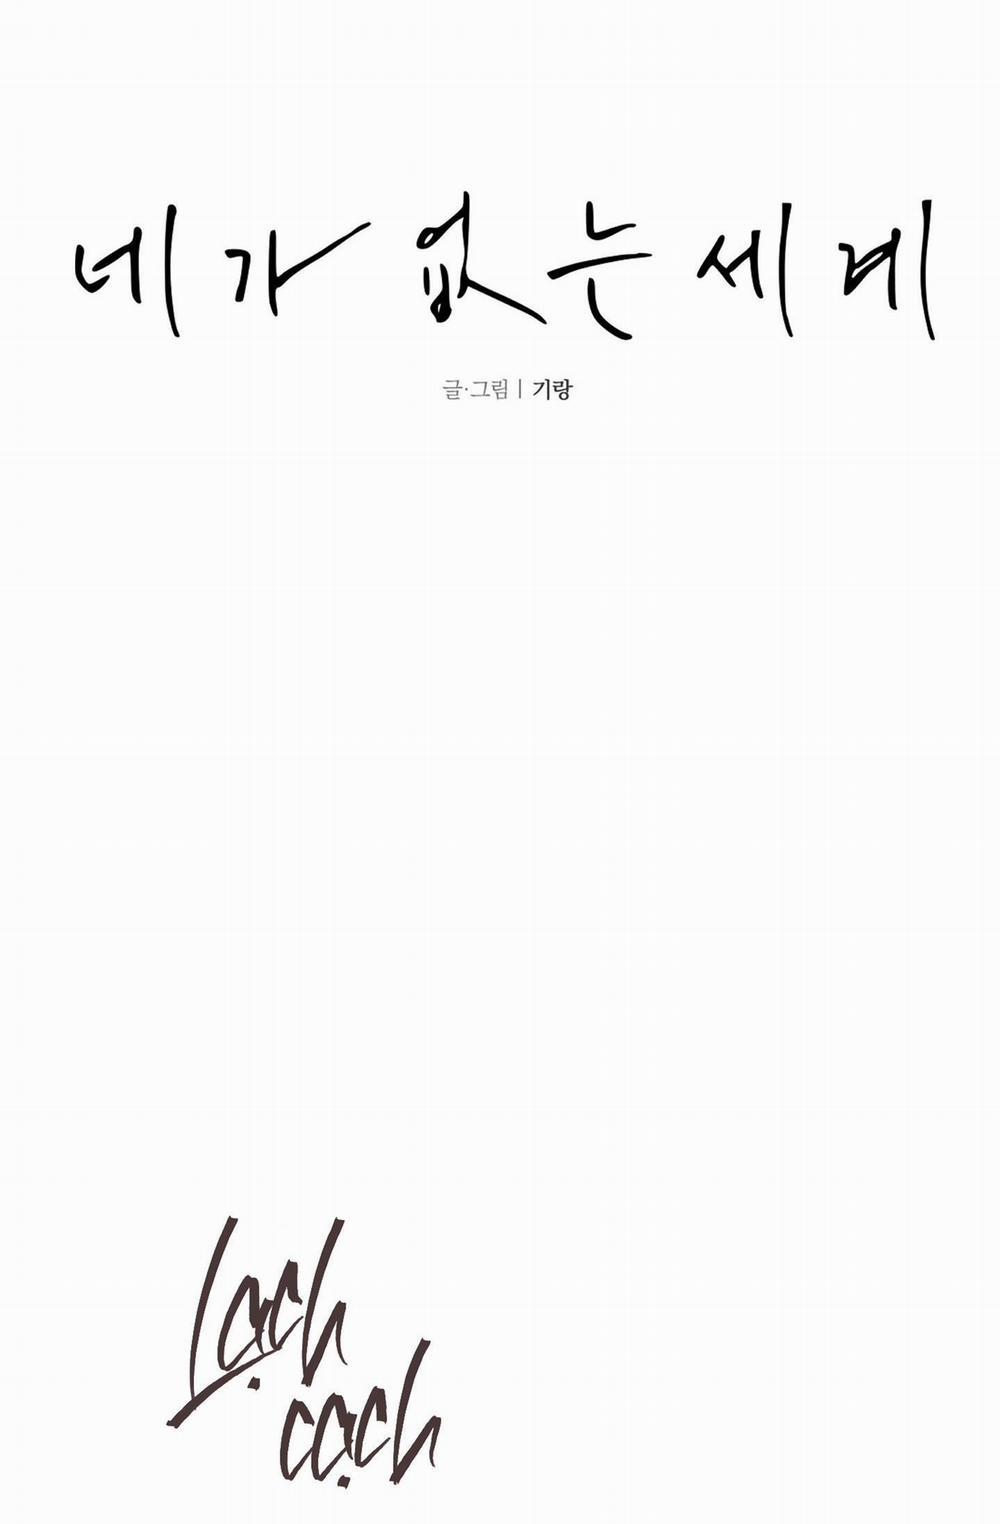 네가 없는 세계
글·그림 | 기랑
Lạch
cạch